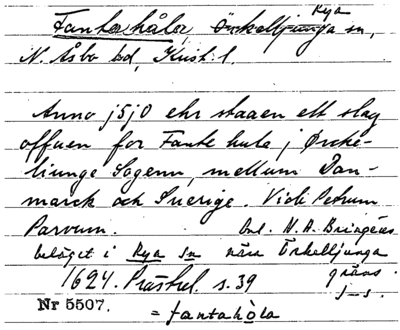 Fantehåler, Örkelljunga sn, Rya
N. Åsbo hd, Krist: l.
Anno j5j0 ehr staaen ett slag
offuen for Fante hula j Ørcke-
liunge Sogenn, mellum Dan-
marck och Suerige. Vidi Petrum
Parvum. Enl. N. A. Bringéus
beläget i Rya sn nära Örkelljunga
gräns.
1624. Prästrel. s. 39
Nr 5507.
= fantahòla